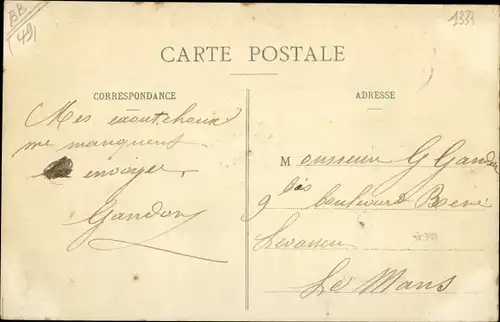 BB
(49)
1333
CARTE POSTALE
CORRESPONDANCE
Mes caoutchoux
me manquent
envoyer
Gandon
ADRESSE
Monsieur G Gandon
9 bis boulevard René
Levasseur
Le Mans